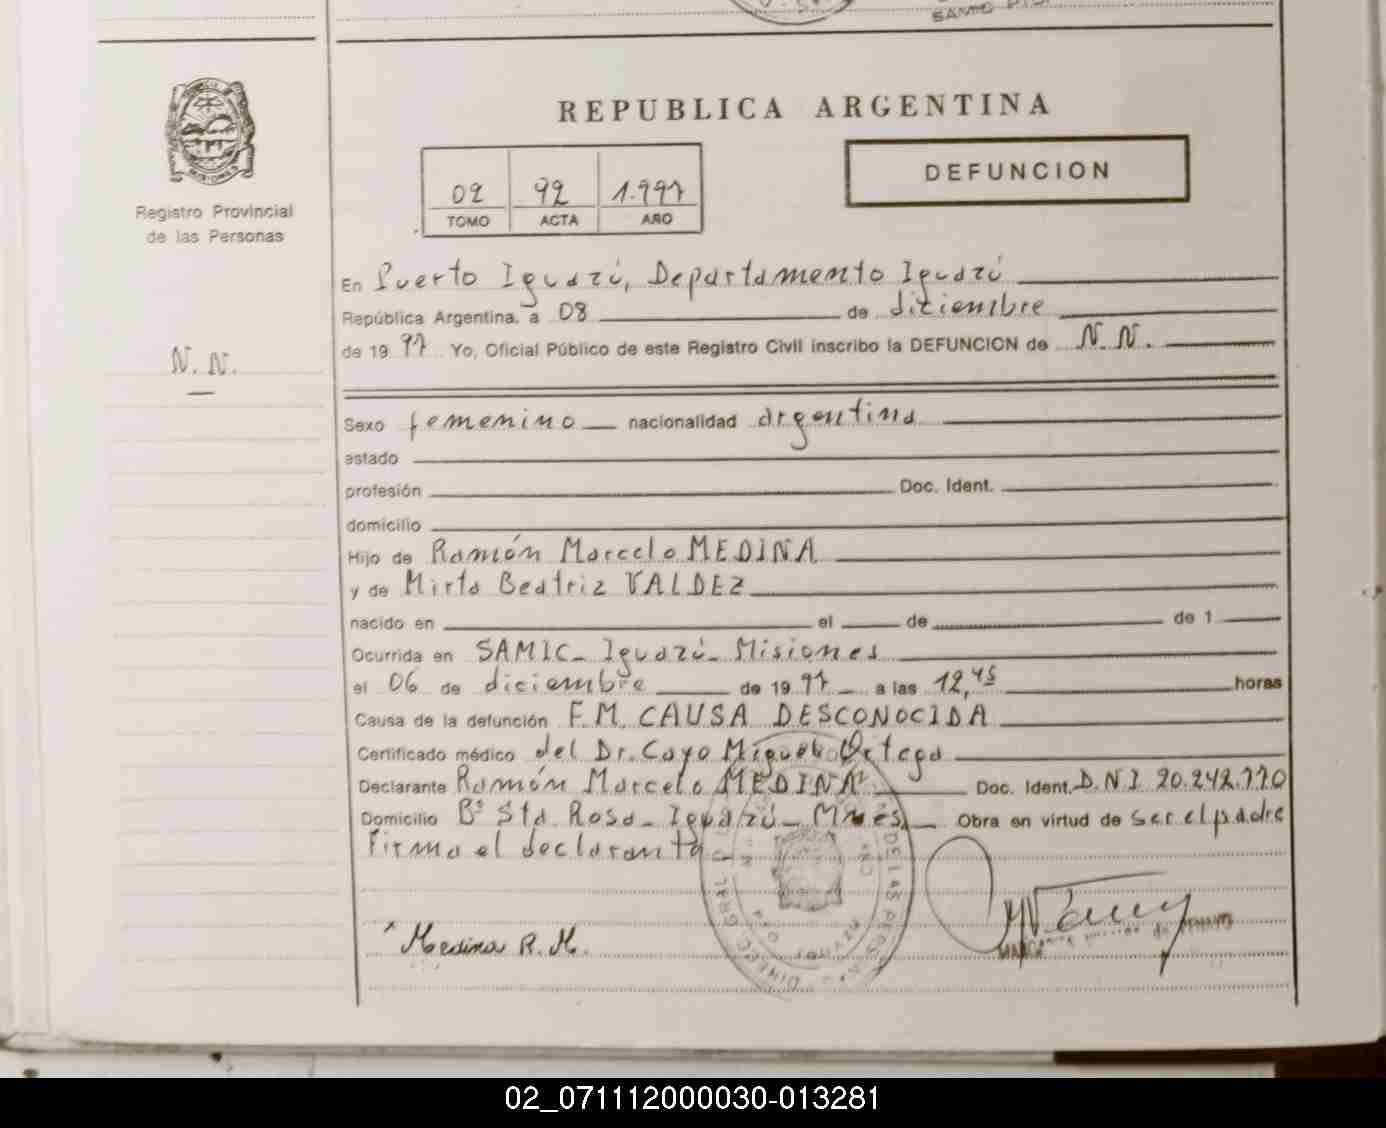 SAMIC
REPUBLICA ARGENTINA
DEFUNCION
02 92 1.997
TOMO ACTA AÑO
Registro Provincial
de las Personas
N.N.
En Puerto Iguazú, Departamento Iguazú
República Argentina. a 08 de diciembre
de 1997 Yo, Oficial Público de este Registro Civil inscribo la DEFUNCION de N.N.
Sexo femenino nacionalidad argentina
estado
profesión Doc. Ident.
domicilio
Hijo de Ramón Marcelo MEDINA
y de Mirta Beatriz VALDEZ
nacido en el de de 1
Ocurrida en SAMIC- Iguazú- Misiones
el 06 de diciembre de 1997 a las 12,45 horas
Causa de la defunción F.M. CAUSA DESCONOCIDA
Certificado médico del Dr. Cayo Miguel Ortega
Declarante Ramón Marcelo MEDINA Doc. Ident. D.N.I. 20.242.770
Domicilio Bº Sta. Rosa- Iguazú- Mnes. Obra en virtud de ser el padre
Firma el declarante
Medina R. M.
02_071112000030-013281